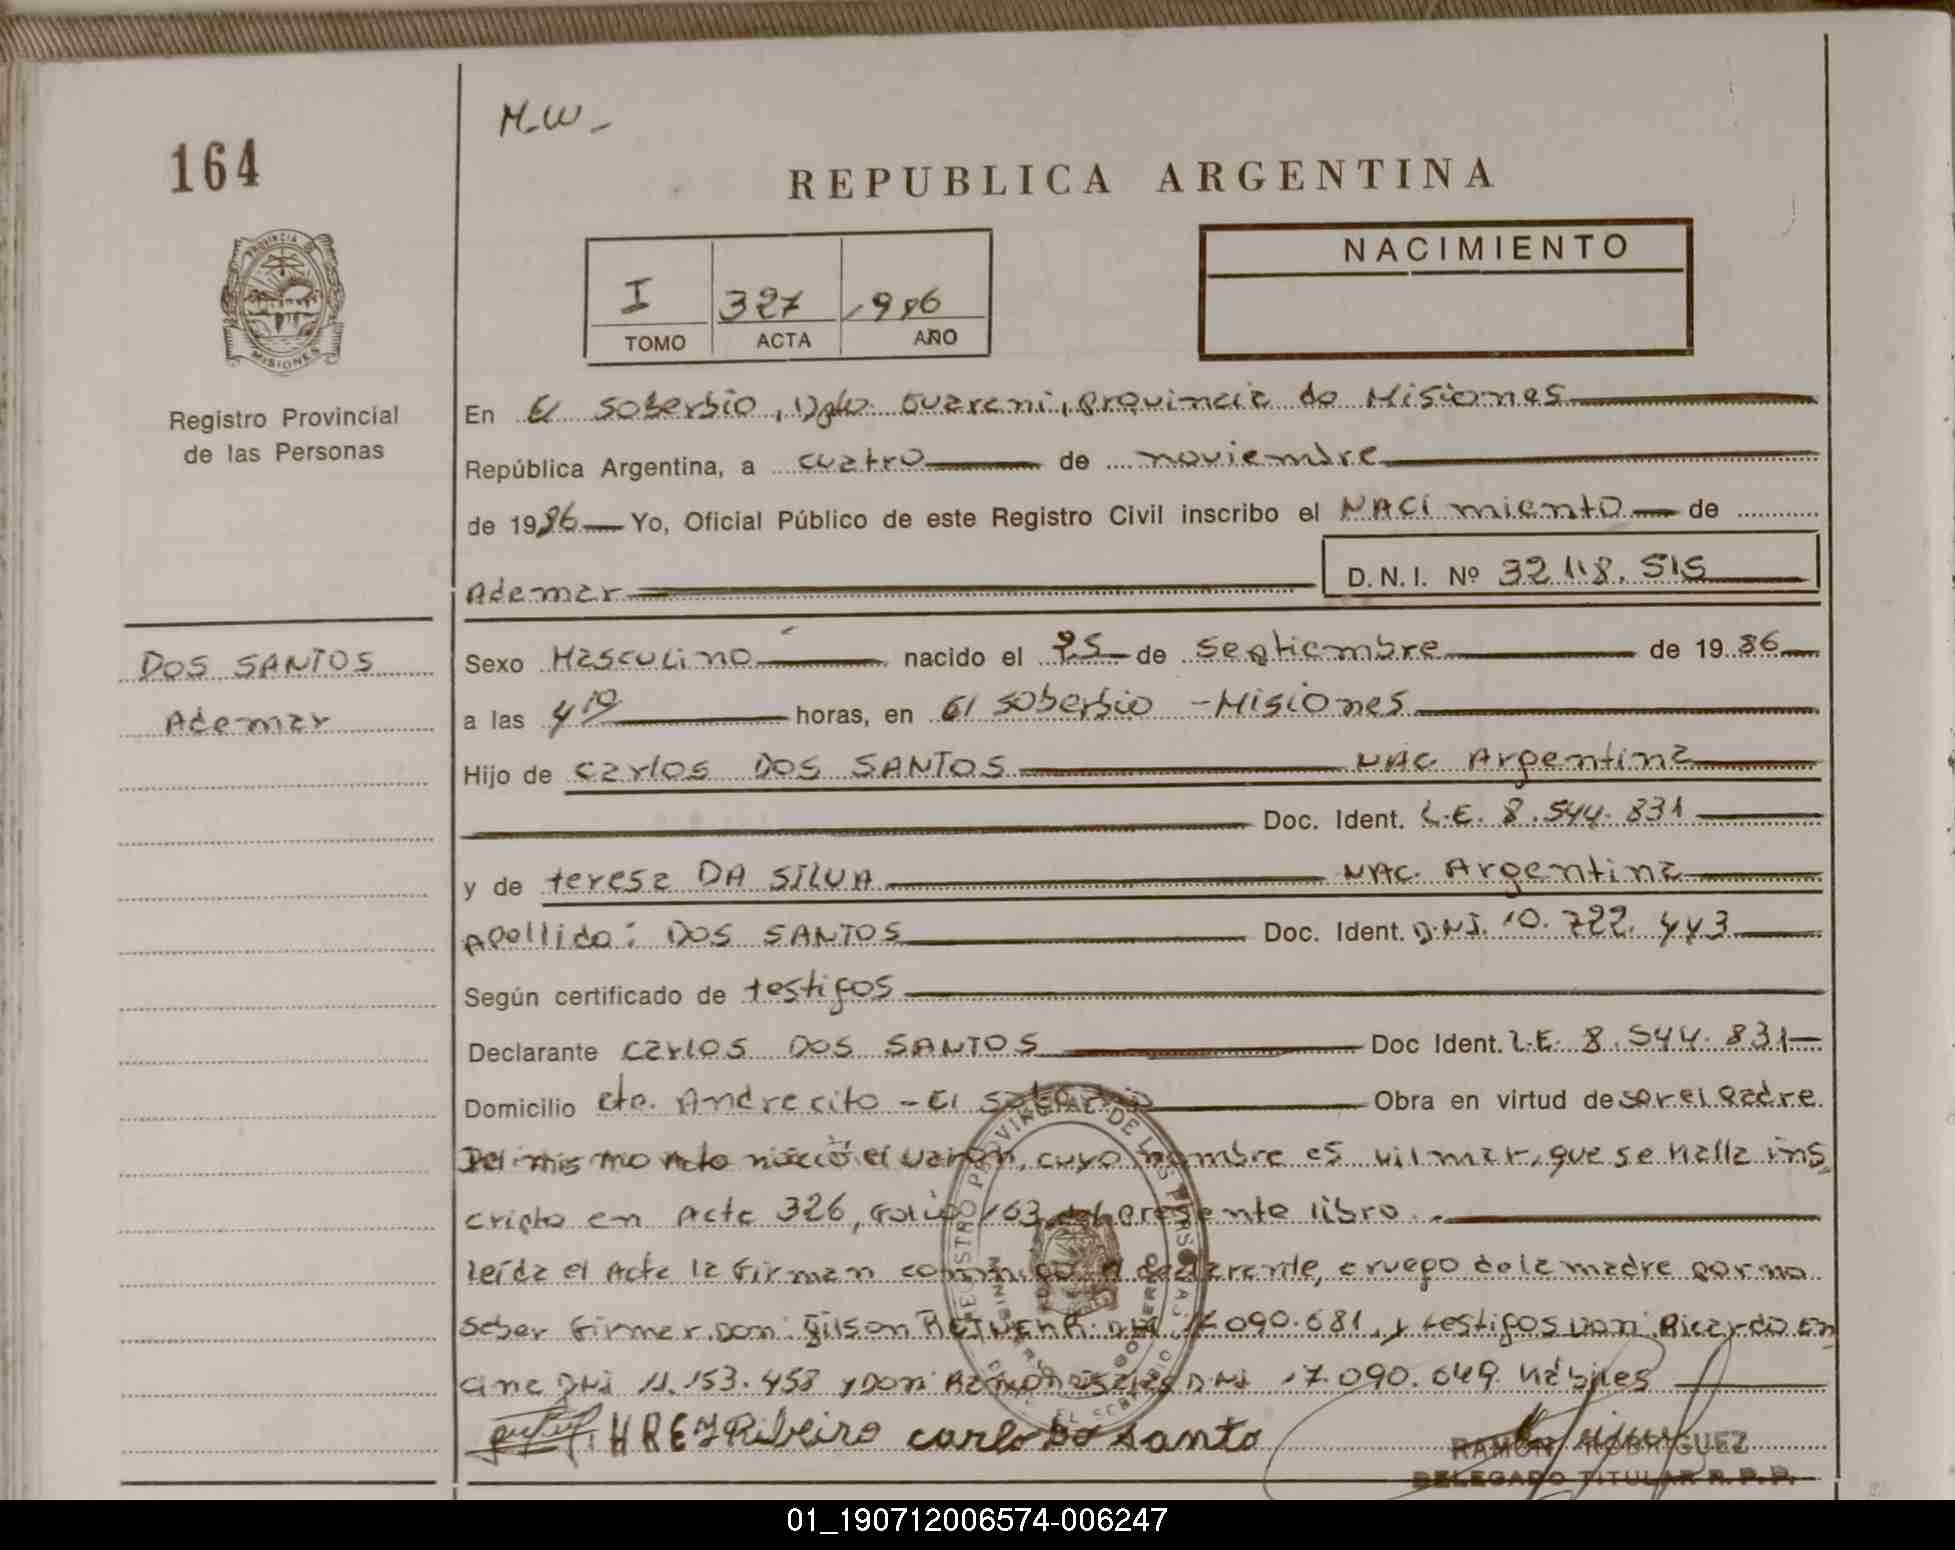 M.W.
164
REPUBLICA ARGENTINA
PROVINCIA DE
MISIONES
I 327 1986
TOMO ACTA AÑO
NACIMIENTO
Registro Provincial
de las Personas
En El Soberbio, Dpto. Guarani, provincia de Misiones
República Argentina, a cuatro de noviembre
de 1986 Yo, Oficial Público de este Registro Civil inscribo el NACimiento de
Ademar D.N.I. Nº 32.118.515
DOS SANTOS
Ademar
Sexo Masculino nacido el 25 de septiembre de 1986
a las 4 10 horas, en El Soberbio - Misiones
Hijo de Carlos DOS SANTOS NAC. Argentina
Doc. Ident. L.E. 8.544.831
y de teresa DA SILVA NAC. Argentina
apellido: DOS SANTOS Doc. Ident. D.N.I. 10.722.443
Según certificado de testigos
Declarante Carlos DOS SANTOS Doc Ident. L.E. 8.544.831
Domicilio Cto. Andrecito - El Soberbio Obra en virtud de ser el padre.
Del mismo Acto nació el varón, cuyo nombre es Vilmar, que se halla ins
cripto en Acta 326, Folio 163 del presente libro.
leída el Acta la firman conmigo el declarante, a ruego de la madre por no
saber firmar Don: Gilson 090.681, y testigos Don: Ricardo
DNI 11.153.458 y Don: Ramon DNI 17.090.649 hábiles
Ribeiro Carlo Do Santo
RAMON RODRIGUEZ
DELEGADO TITULAR R.P.P.
REGISTRO PROVINCIAL DE LAS PERSONAS
MINISTERIO DE GOBIERNO
EL SOBERBIO
01_190712006574-006247